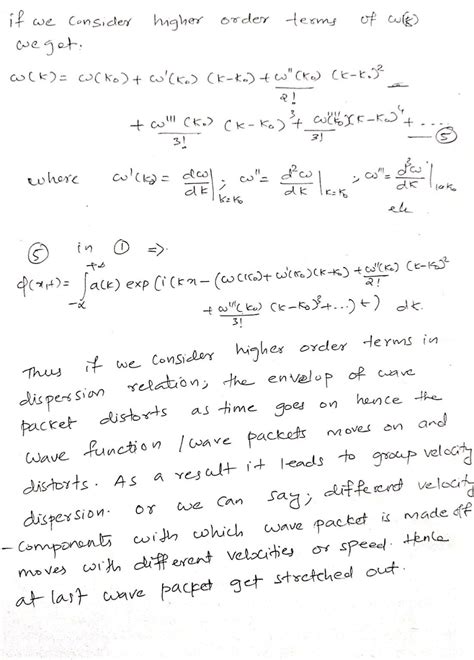 if we consider higher order terms of ω(k)
we get.
ω(k) = ω(k₀) + ω'(k₀) (k-k₀) + ω''(k₀)/2! (k-k₀)²
+ ω'''(k₀)/3! (k-k₀)³ + ω''''(k₀)/3! (k-k₀)⁴ + .... ⑤
where ω'(k₀) = dω/dk |k=k₀ ; ω'' = d²ω/dk |k=k₀ ; ω''' = d³ω/dk |k=k₀
etc
⑤ in ① =>.
φ(x,t) = ∫ -∞ +∞ a(k) exp (i(kx - (ω(k₀) + ω'(k₀)(k-k₀) + ω''(k₀)/2! (k-k₀)²
+ ω'''(k₀)/3! (k-k₀)³ + ...) t) dk.
Thus if we consider higher order terms in
dispersion relation, the envelop of wave
packet distorts as time goes on hence the
wave function / wave packets moves on and
distorts. As a result it leads to group velocity
dispersion. or we can say, different velocity
- components with which wave packet is made off
moves with different velocities or speed. Hence
at last wave packet get stretched out.